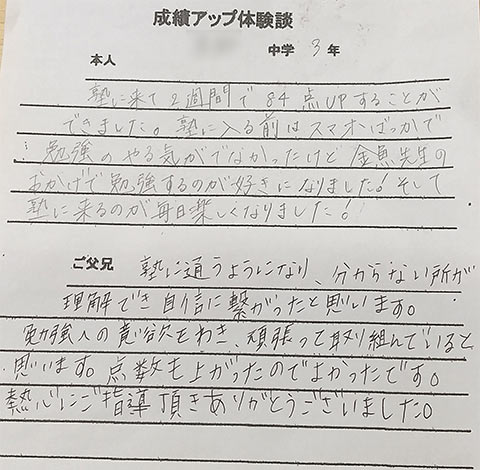 成績アップ体験談
中学 3 年
本人
塾に来て2週間で84点UPすることが
できました。塾に入る前はスマホばっかで
勉強のやる気がでなかったけど金魚先生の
おかげで勉強するのが好きになりました!そして
塾に来るのが毎日楽しくなりました!
ご父兄 塾に通うようになり、分からない所が
理解でき自信に繋がったと思います。
勉強への意欲もわき、頑張って取り組んでいると
思います。点数も上がったのでよかったです。
熱心にご指導頂きありがとうございました。